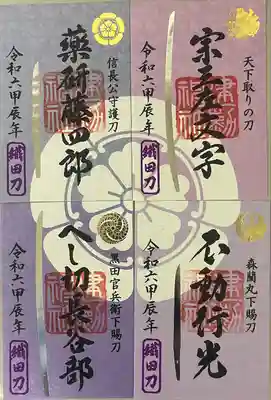 天下取りの刀
宗三左文字
令和六甲辰年
織田刀
信長公守護刀
薬研藤四郎
令和六甲辰年
織田刀
森蘭丸下賜刀
不動行光
令和六甲辰年
織田刀
黒田官兵衛下賜刀
へし切長谷部
令和六甲辰年
織田刀